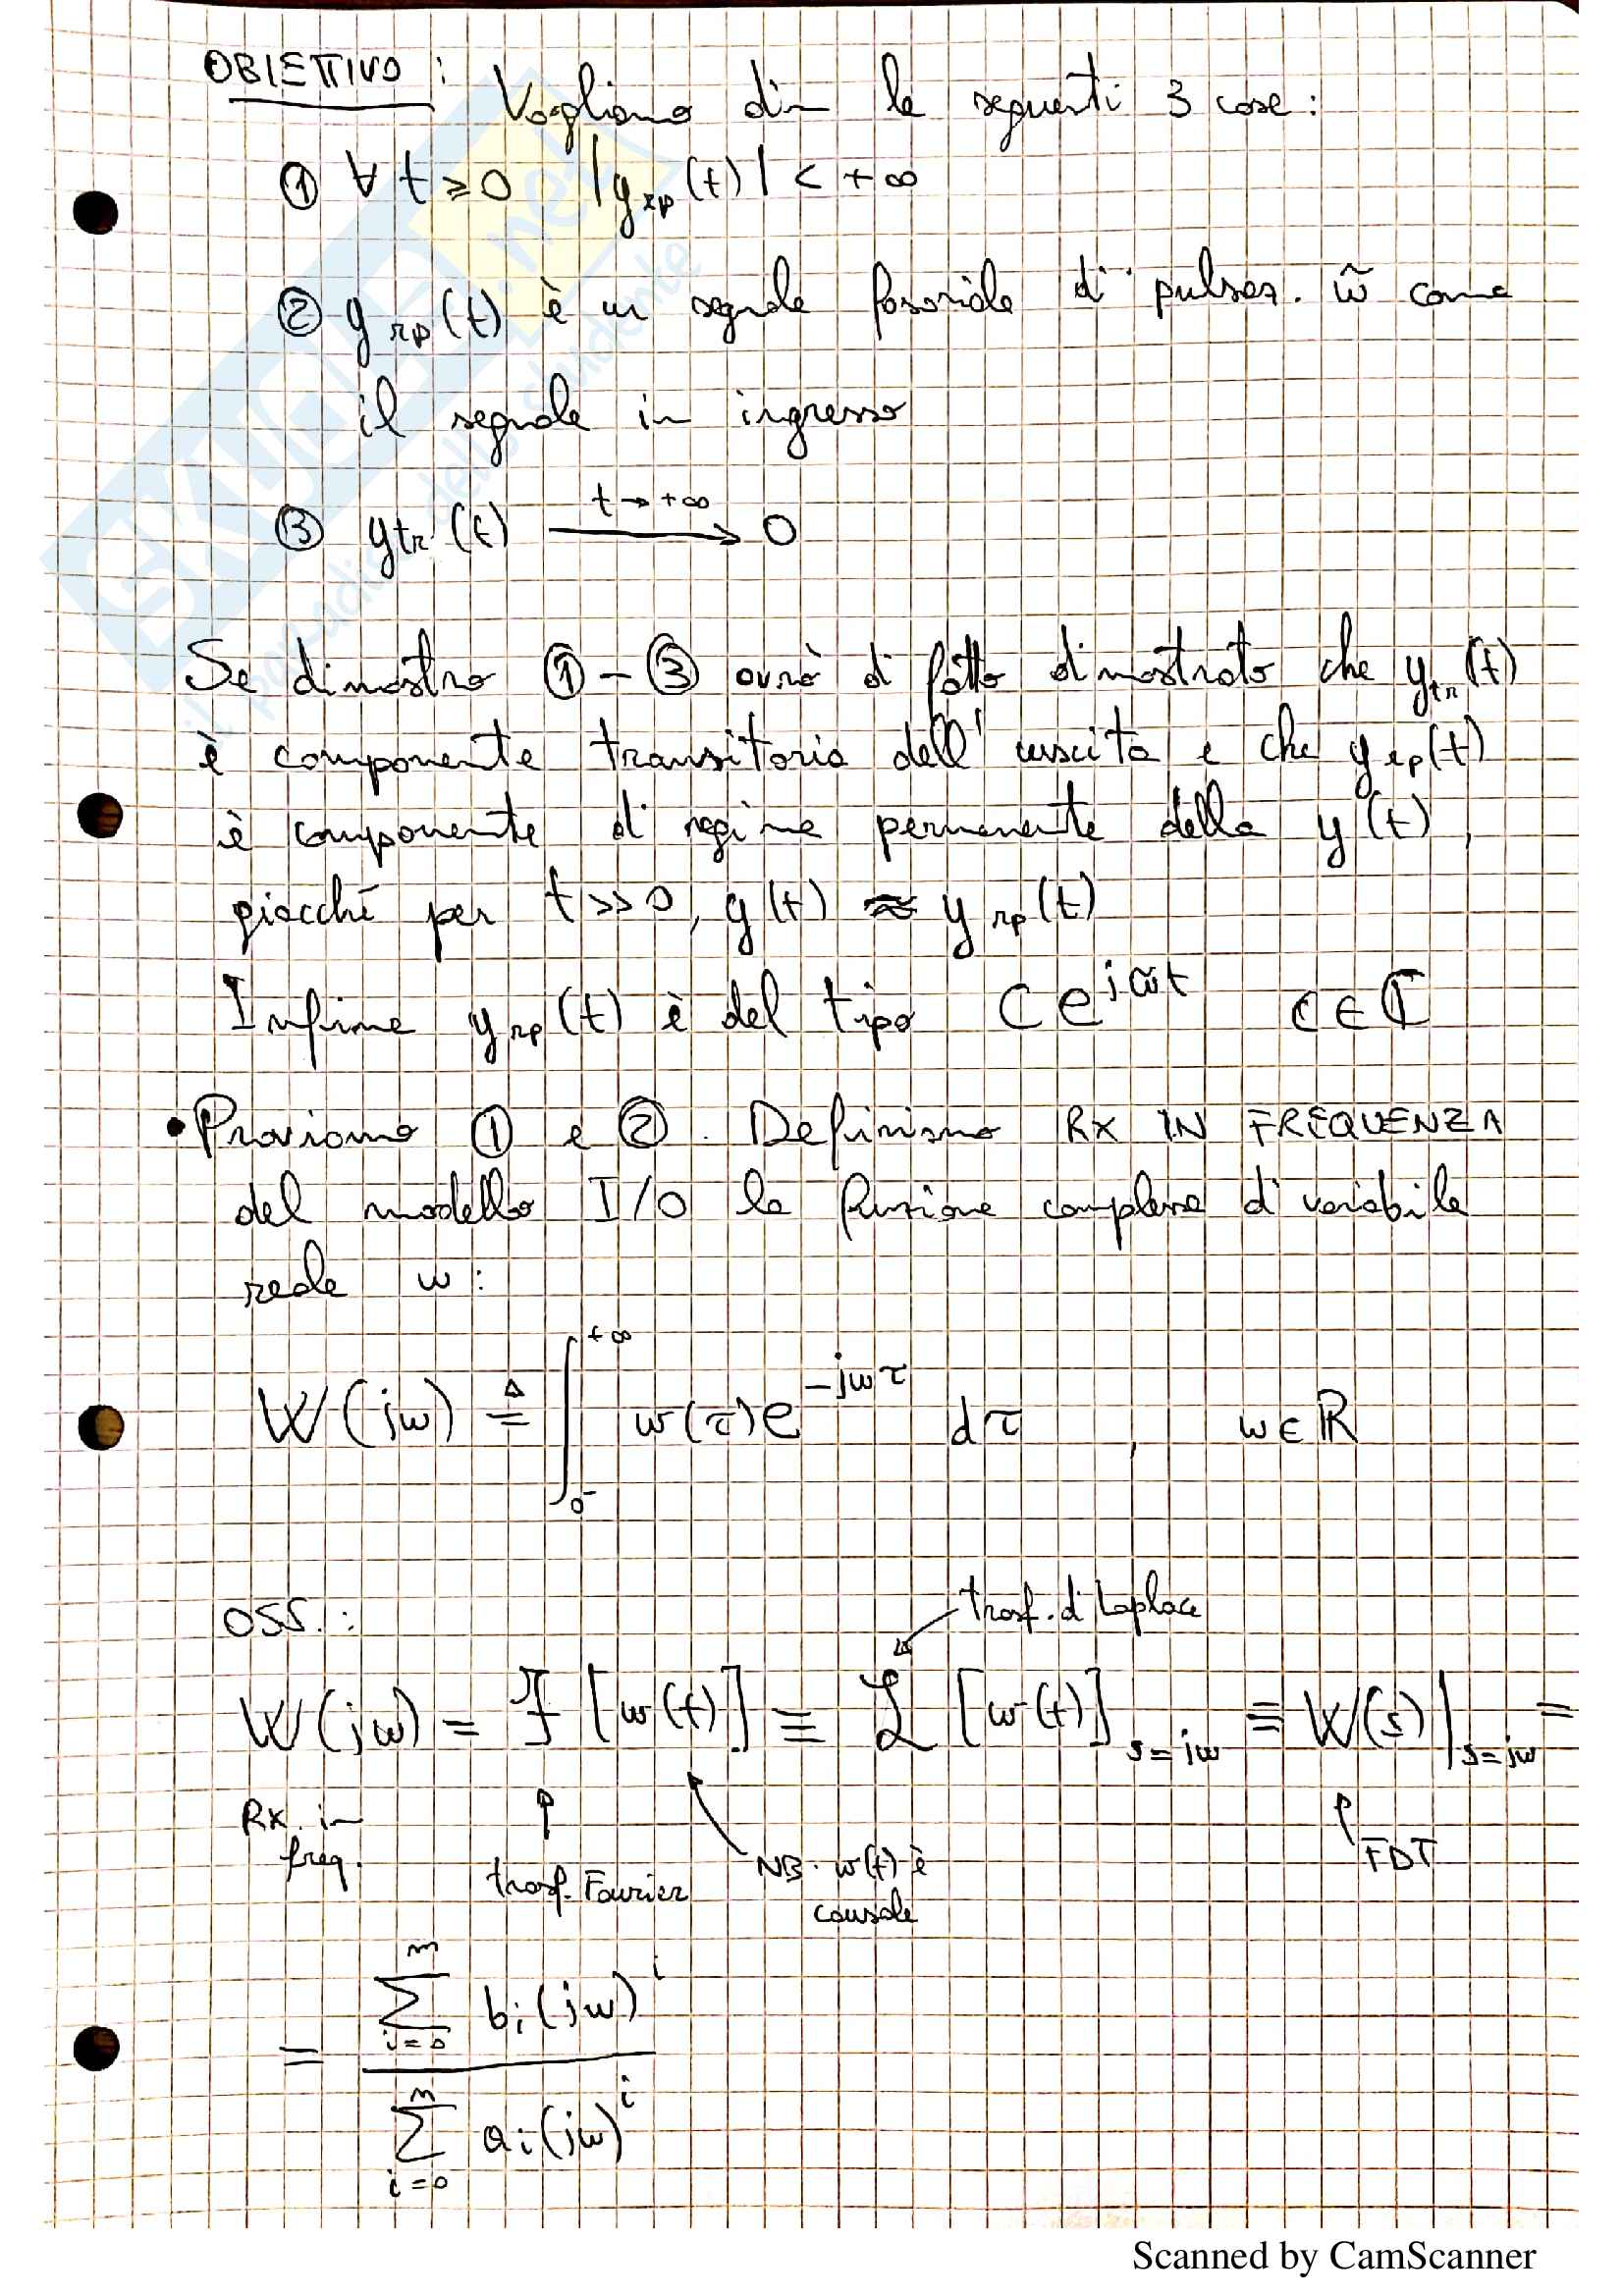 OBIETTIVO : Vogliamo dim le seguenti 3 cose :
① ∀ t ⩾ 0 |y_rp(t)| < +∞
② y_rp(t) è un segnale fasoriale di pulsaz. w̃ come
il segnale in ingresso
③ y_tr(t) → 0 t→+∞
Se dimostro ①-③ avrò di fatto dimostrato che y_tr(t)
è componente transitoria dell'uscita e che y_rp(t)
è componente di regime permanente della y(t),
giacché per t>>0, y(t) ≈ y_rp(t)
Infine y_rp(t) è del tipo C e^{jw̃t} C∈ℂ
• Proviamo ① e ②. Definiamo RX IN FREQUENZA
del modello I/O la funzione complessa di variabile
reale w :
W(jw) ≜ ∫_{0^-}^{+∞} w(τ)e^{-jwτ} dτ , w∈ℝ
trasf. di Laplace
OSS. :
W(jw) = ℱ[w(t)] ≡ ℒ[w(t)]_{s=jw} ≡ W(s)|_{s=jw} =
Rx. in freq.
trasf. Fourier
NB. w(t) è causale
FDT
= \frac{\sum_{i=0}^{m} b_i(jw)^i}{\sum_{i=0}^{n} a_i(jw)^i}
SKUOLA.net
il paradiso dello studente
Scanned by CamScanner